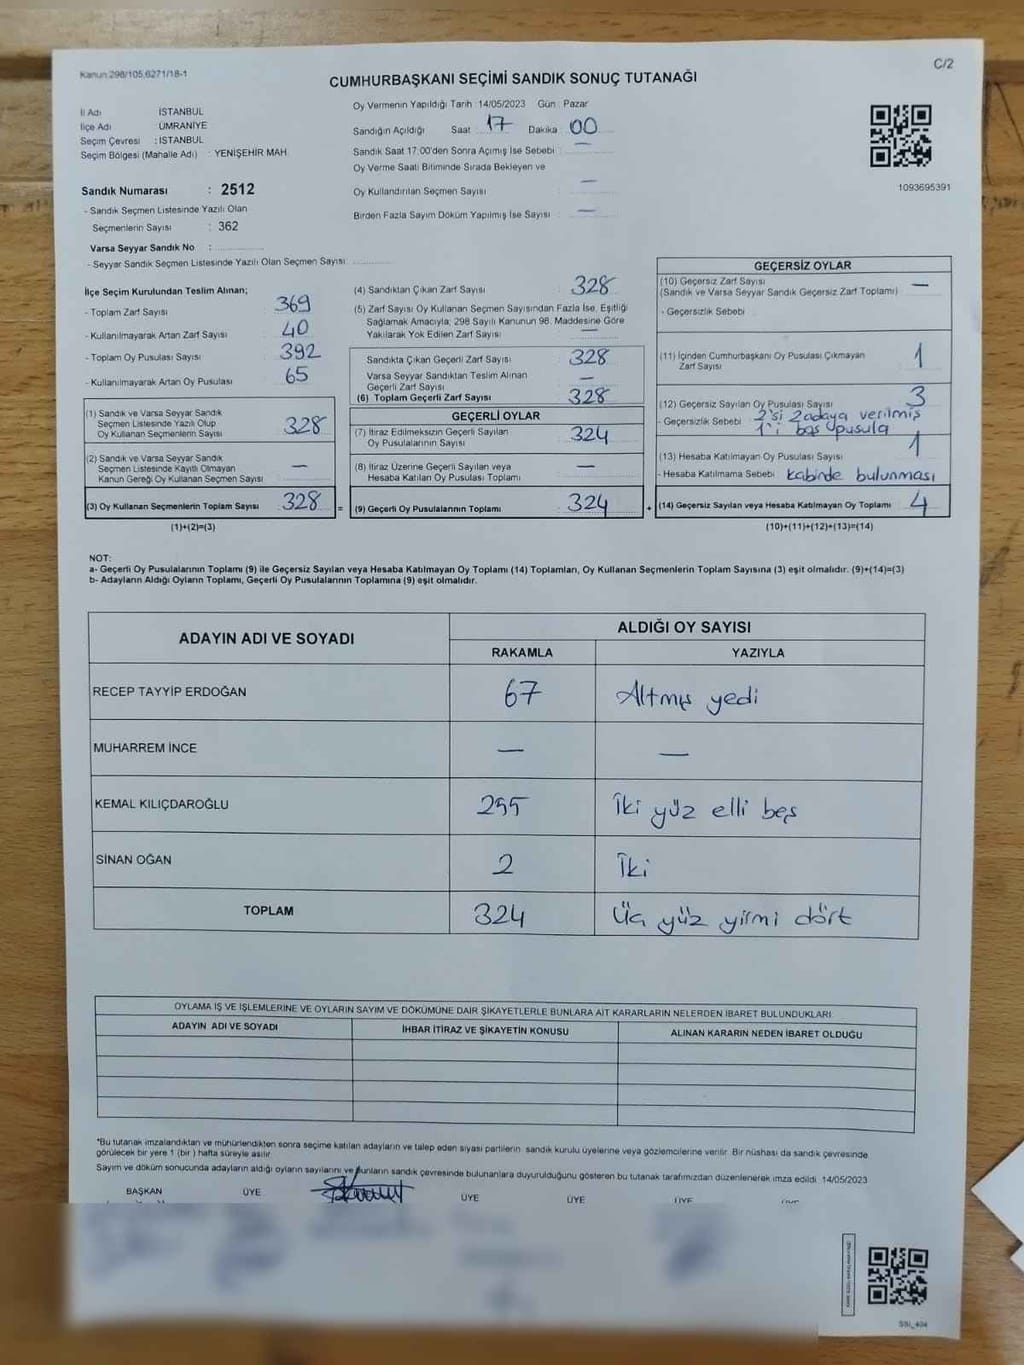 Kanun:298/105,6271/18-1
C/2
CUMHURBAŞKANI SEÇİMİ SANDIK SONUÇ TUTANAĞI
İl Adı İSTANBUL
İlçe Adı ÜMRANİYE
Seçim Çevresi : İSTANBUL
Seçim Bölgesi (Mahalle Adı) : YENİŞEHİR MAH
Sandık Numarası : 2512
- Sandık Seçmen Listesinde Yazılı Olan
Seçmenlerin Sayısı : 362
Varsa Seyyar Sandık No :
- Seyyar Sandık Seçmen Listesinde Yazılı Olan Seçmen Sayısı:
Oy Vermenin Yapıldığı Tarih : 14/05/2023 Gün : Pazar
Sandığın Açıldığı Saat 17 Dakika 00
Sandık Saat 17:00'den Sonra Açımış İse Sebebi : —
Oy Verme Saati Bitiminde Sırada Bekleyen ve
Oy Kullandırılan Seçmen Sayısı —
Birden Fazla Sayım Döküm Yapılmış İse Sayısı —
1093695391
İlçe Seçim Kurulundan Teslim Alınan;
- Toplam Zarf Sayısı 369
- Kullanılmayarak Artan Zarf Sayısı 40
- Toplam Oy Pusulası Sayısı 392
- Kullanılmayarak Artan Oy Pusulası 65
(1) Sandık ve Varsa Seyyar Sandık
Seçmen Listesinde Yazılı Olup
Oy Kullanan Seçmenlerin Sayısı 328
(2) Sandık ve Varsa Seyyar Sandık
Seçmen Listesinde Kayıtlı Olmayan
Kanun Gereği Oy Kullanan Seçmen Sayısı —
(3) Oy Kullanan Seçmenlerin Toplam Sayısı 328 =
(1)+(2)=(3)
(4) Sandıktan Çıkan Zarf Sayısı 328
(5) Zarf Sayısı Oy Kullanan Seçmen Sayısından Fazla İse, Eşitliği
Sağlamak Amacıyla; 298 Sayılı Kanunun 98. Maddesine Göre
Yakılarak Yok Edilen Zarf Sayısı —
Sandıkta Çıkan Geçerli Zarf Sayısı 328
Varsa Seyyar Sandıktan Teslim Alınan
Geçerli Zarf Sayısı —
(6) Toplam Geçerli Zarf Sayısı 328
GEÇERLİ OYLAR
(7) İtiraz Edilmeksizin Geçerli Sayılan
Oy Pusulalarının Sayısı 324
(8) İtiraz Üzerine Geçerli Sayılan veya
Hesaba Katılan Oy Pusulası Toplamı —
(9) Geçerli Oy Pusulalarının Toplamı 324 +
GEÇERSİZ OYLAR
(10) Geçersiz Zarf Sayısı —
(Sandık ve Varsa Seyyar Sandık Geçersiz Zarf Toplamı)
- Geçersizlik Sebebi
(11) İçinden Cumhurbaşkanı Oy Pusulası Çıkmayan
Zarf Sayısı 1
(12) Geçersiz Sayılan Oy Pusulası Sayısı 3
- Geçersizlik Sebebi 2'si 2 adaya verilmiş
1'i boş pusula
(13) Hesaba Katılmayan Oy Pusulası Sayısı 1
- Hesaba Katılmama Sebebi kabinde bulunması
(14) Geçersiz Sayılan veya Hesaba Katılmayan Oy Toplamı 4
(10)+(11)+(12)+(13)=(14)
NOT:
a- Geçerli Oy Pusulalarının Toplamı (9) ile Geçersiz Sayılan veya Hesaba Katılmayan Oy Toplamı (14) Toplamları, Oy Kullanan Seçmenlerin Toplam Sayısına (3) eşit olmalıdır. (9)+(14)=(3)
b- Adayların Aldığı Oyların Toplamı, Geçerli Oy Pusulalarının Toplamına (9) eşit olmalıdır.
ADAYIN ADI VE SOYADI ALDIĞI OY SAYISI
RAKAMLA YAZIYLA
RECEP TAYYİP ERDOĞAN 67 Altmış yedi
MUHARREM İNCE — —
KEMAL KILIÇDAROĞLU 255 İki yüz elli beş
SİNAN OĞAN 2 İki
TOPLAM 324 Üç yüz yirmi dört
OYLAMA İŞ VE İŞLEMLERİNE VE OYLARIN SAYIM VE DÖKÜMÜNE DAİR ŞİKAYETLERLE BUNLARA AİT KARARLARIN NELERDEN İBARET BULUNDUKLARI
ADAYIN ADI VE SOYADI İHBAR İTİRAZ VE ŞİKAYETİN KONUSU ALINAN KARARIN NEDEN İBARET OLDUĞU
*Bu tutanak imzalandıktan ve mühürlendikten sonra seçime katılan adayların ve talep eden siyasi partilerin sandık kurulu üyelerine veya gözlemcilerine verilir. Bir nüshası da sandık çevresinde
görülecek bir yere 1 (bir ) hafta süreyle asılır.
Sayım ve döküm sonucunda adayların aldığı oyların sayılarını ve bunların sandık çevresinde bulunanlara duyurulduğunu gösteren bu tutanak tarafımızdan düzenlenerek imza edildi. 14/05/2023
BAŞKAN ÜYE ÜYE ÜYE ÜYE
SSI_404